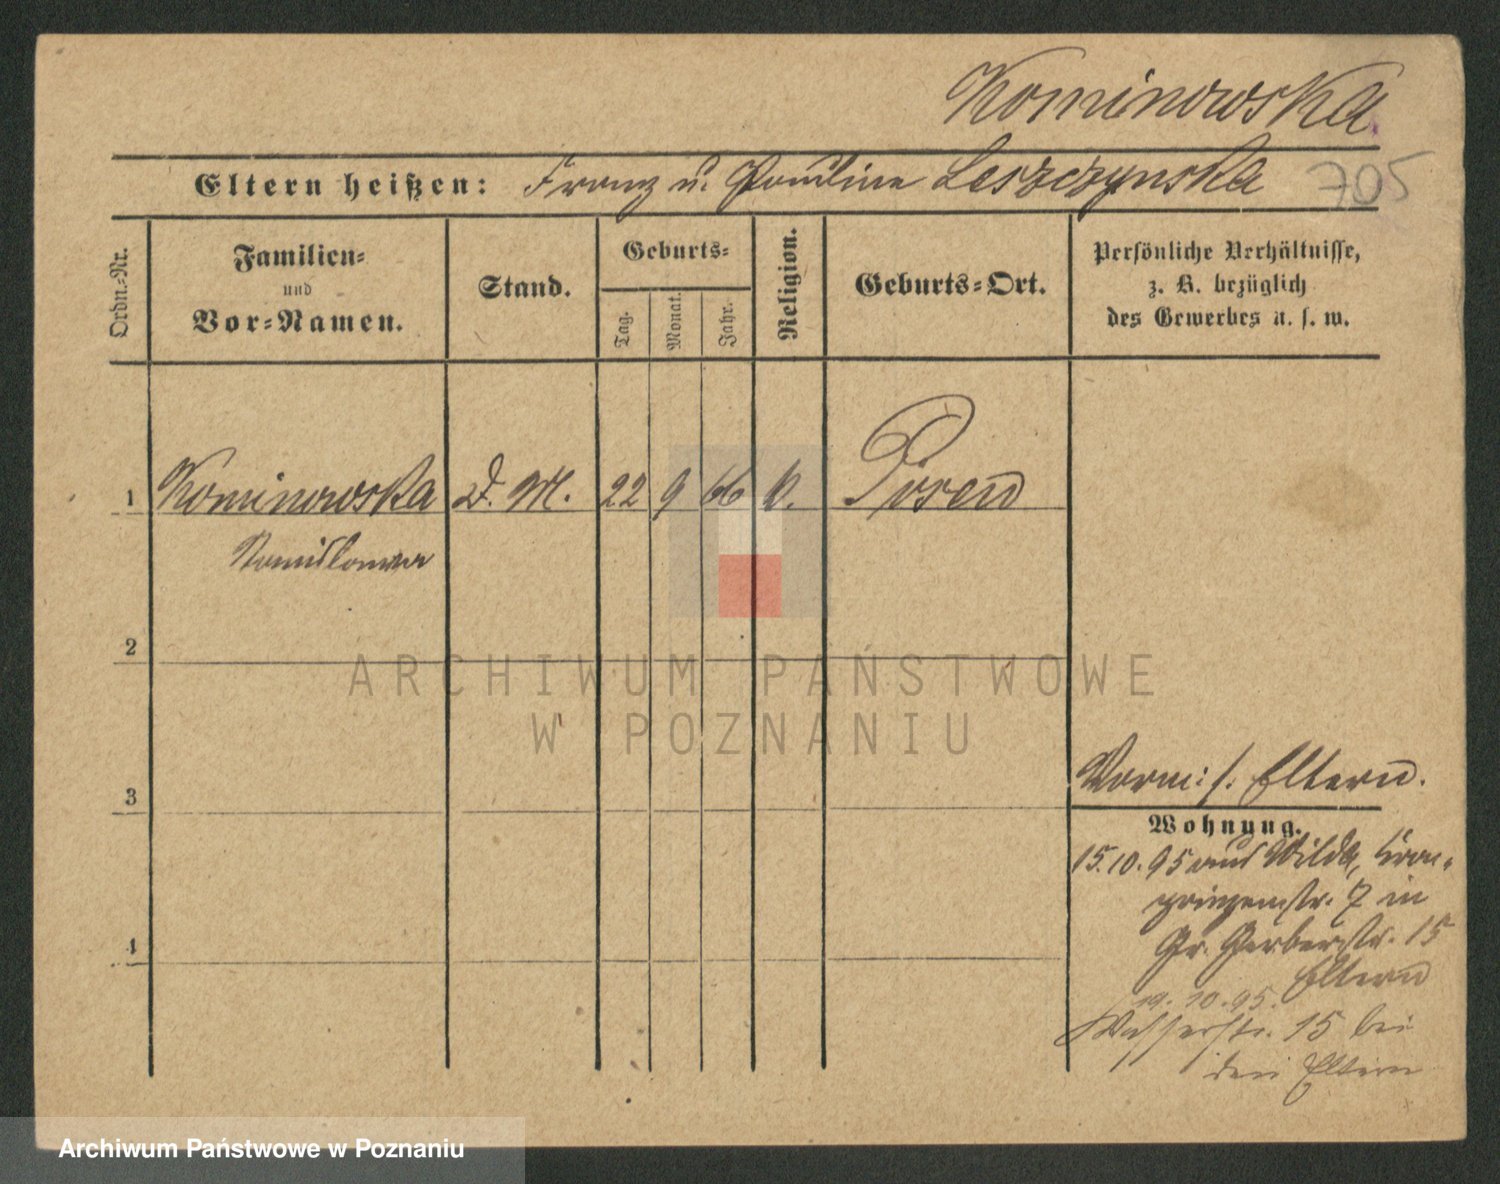 Kominowska
Eltern heißen: Franz u. Pauline Leszczynska 705
Ordn.-Nr.
Familien-
und
Vor-Namen.
Stand.
Geburts-
Tag.
Monat.
Jahr.
Religion.
Geburts-Ort.
Persönliche Verhältnisse,
z. B. bezüglich
des Gewerbes u. s. w.
1 Kominowska D. M. 22 9 66 k. Posen
Stanislawa
2
3
4
Vorm: s. Eltern.
Wohnung.
15.10.95 aus Wilda, Kron-
prinzenstr. 7 in
Gr. Gerberstr. 15
Eltern
19.10.95.
Wasserstr. 15 bei
den Eltern
ARCHIWUM PAŃSTWOWE
W POZNANIU
Archiwum Państwowe w Poznaniu